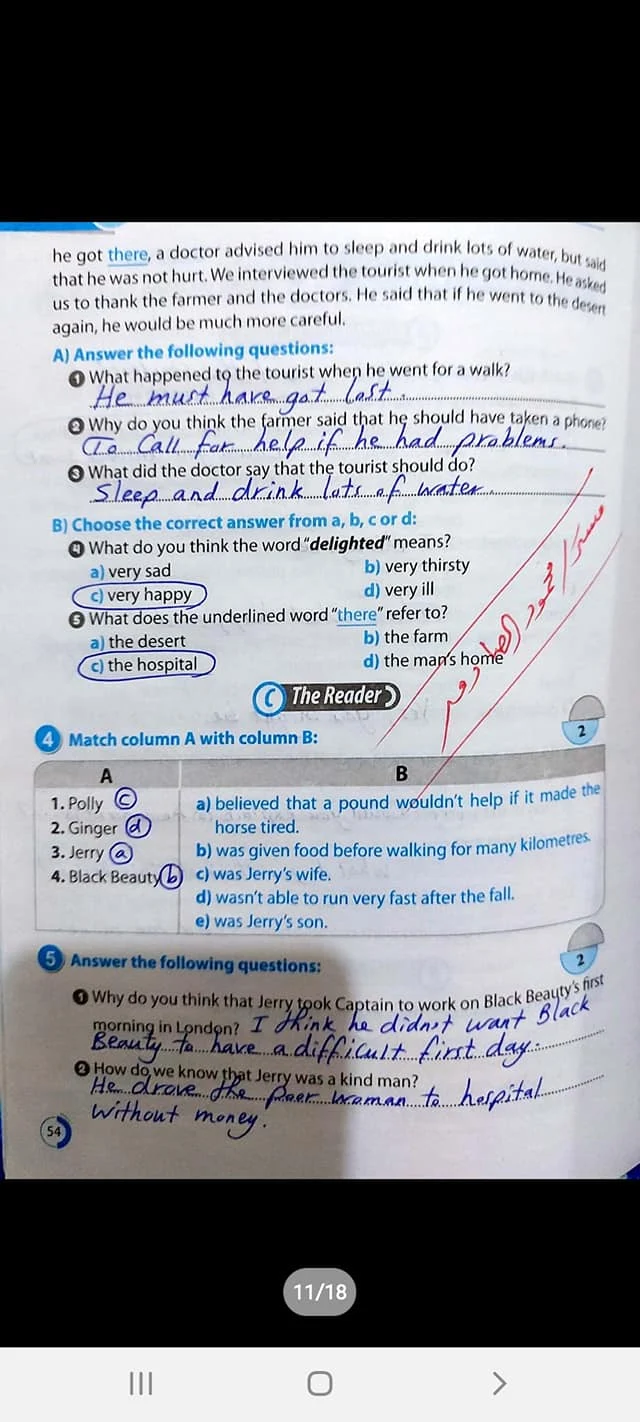 he got there, a doctor advised him to sleep and drink lots of water, but said
that he was not hurt. We interviewed the tourist when he got home. He asked
us to thank the farmer and the doctors. He said that if he went to the desert
again, he would be much more careful.
A) Answer the following questions:
1 What happened to the tourist when he went for a walk?
He must have got lost.
2 Why do you think the farmer said that he should have taken a phone?
To Call for help if he had problems.
3 What did the doctor say that the tourist should do?
Sleep and drink lots of water.
B) Choose the correct answer from a, b, c or d:
4 What do you think the word "delighted" means?
a) very sad b) very thirsty
c) very happy d) very ill
5 What does the underlined word "there" refer to?
a) the desert b) the farm
c) the hospital d) the man's home
C The Reader
4 Match column A with column B: 2
A B
1. Polly C a) believed that a pound wouldn't help if it made the
2. Ginger d horse tired.
3. Jerry a b) was given food before walking for many kilometres.
4. Black Beauty b c) was Jerry's wife.
d) wasn't able to run very fast after the fall.
e) was Jerry's son.
5 Answer the following questions: 2
1 Why do you think that Jerry took Captain to work on Black Beauty's first
morning in London? I think he didn't want Black
Beauty to have a difficult first day.
2 How do we know that Jerry was a kind man?
He drove the poor woman to hospital
without money.
54
11/18